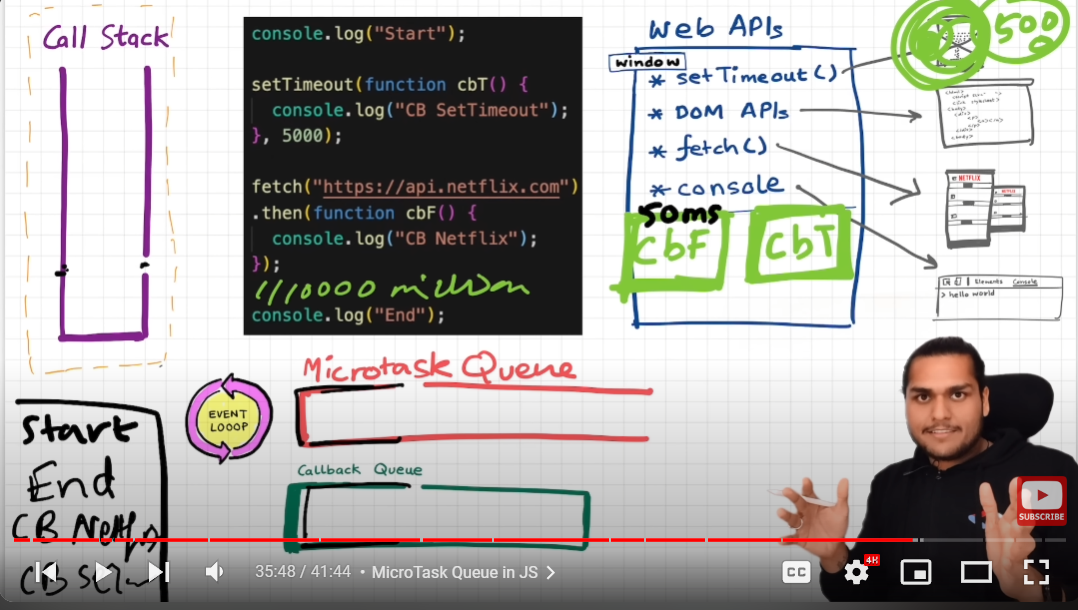 Call Stack
console.log("Start");
setTimeout(function cbT() {
console.log("CB SetTimeout");
}, 5000);
fetch("https://api.netflix.com")
.then(function cbF() {
console.log("CB Netflix");
});
console.log("End");
Web APIs
window
* setTimeout()
* DOM APIs
* fetch()
* console
50ms
CbF
CbT
500
NETFLIX
NETFLIX
Elements Console
> hello world
Microtask Queue
EVENT
LOOOP
Callback Queue
Start
End
CB
CB
SUBSCRIBE
35:48 / 41:44 • MicroTask Queue in JS >
CC
4K